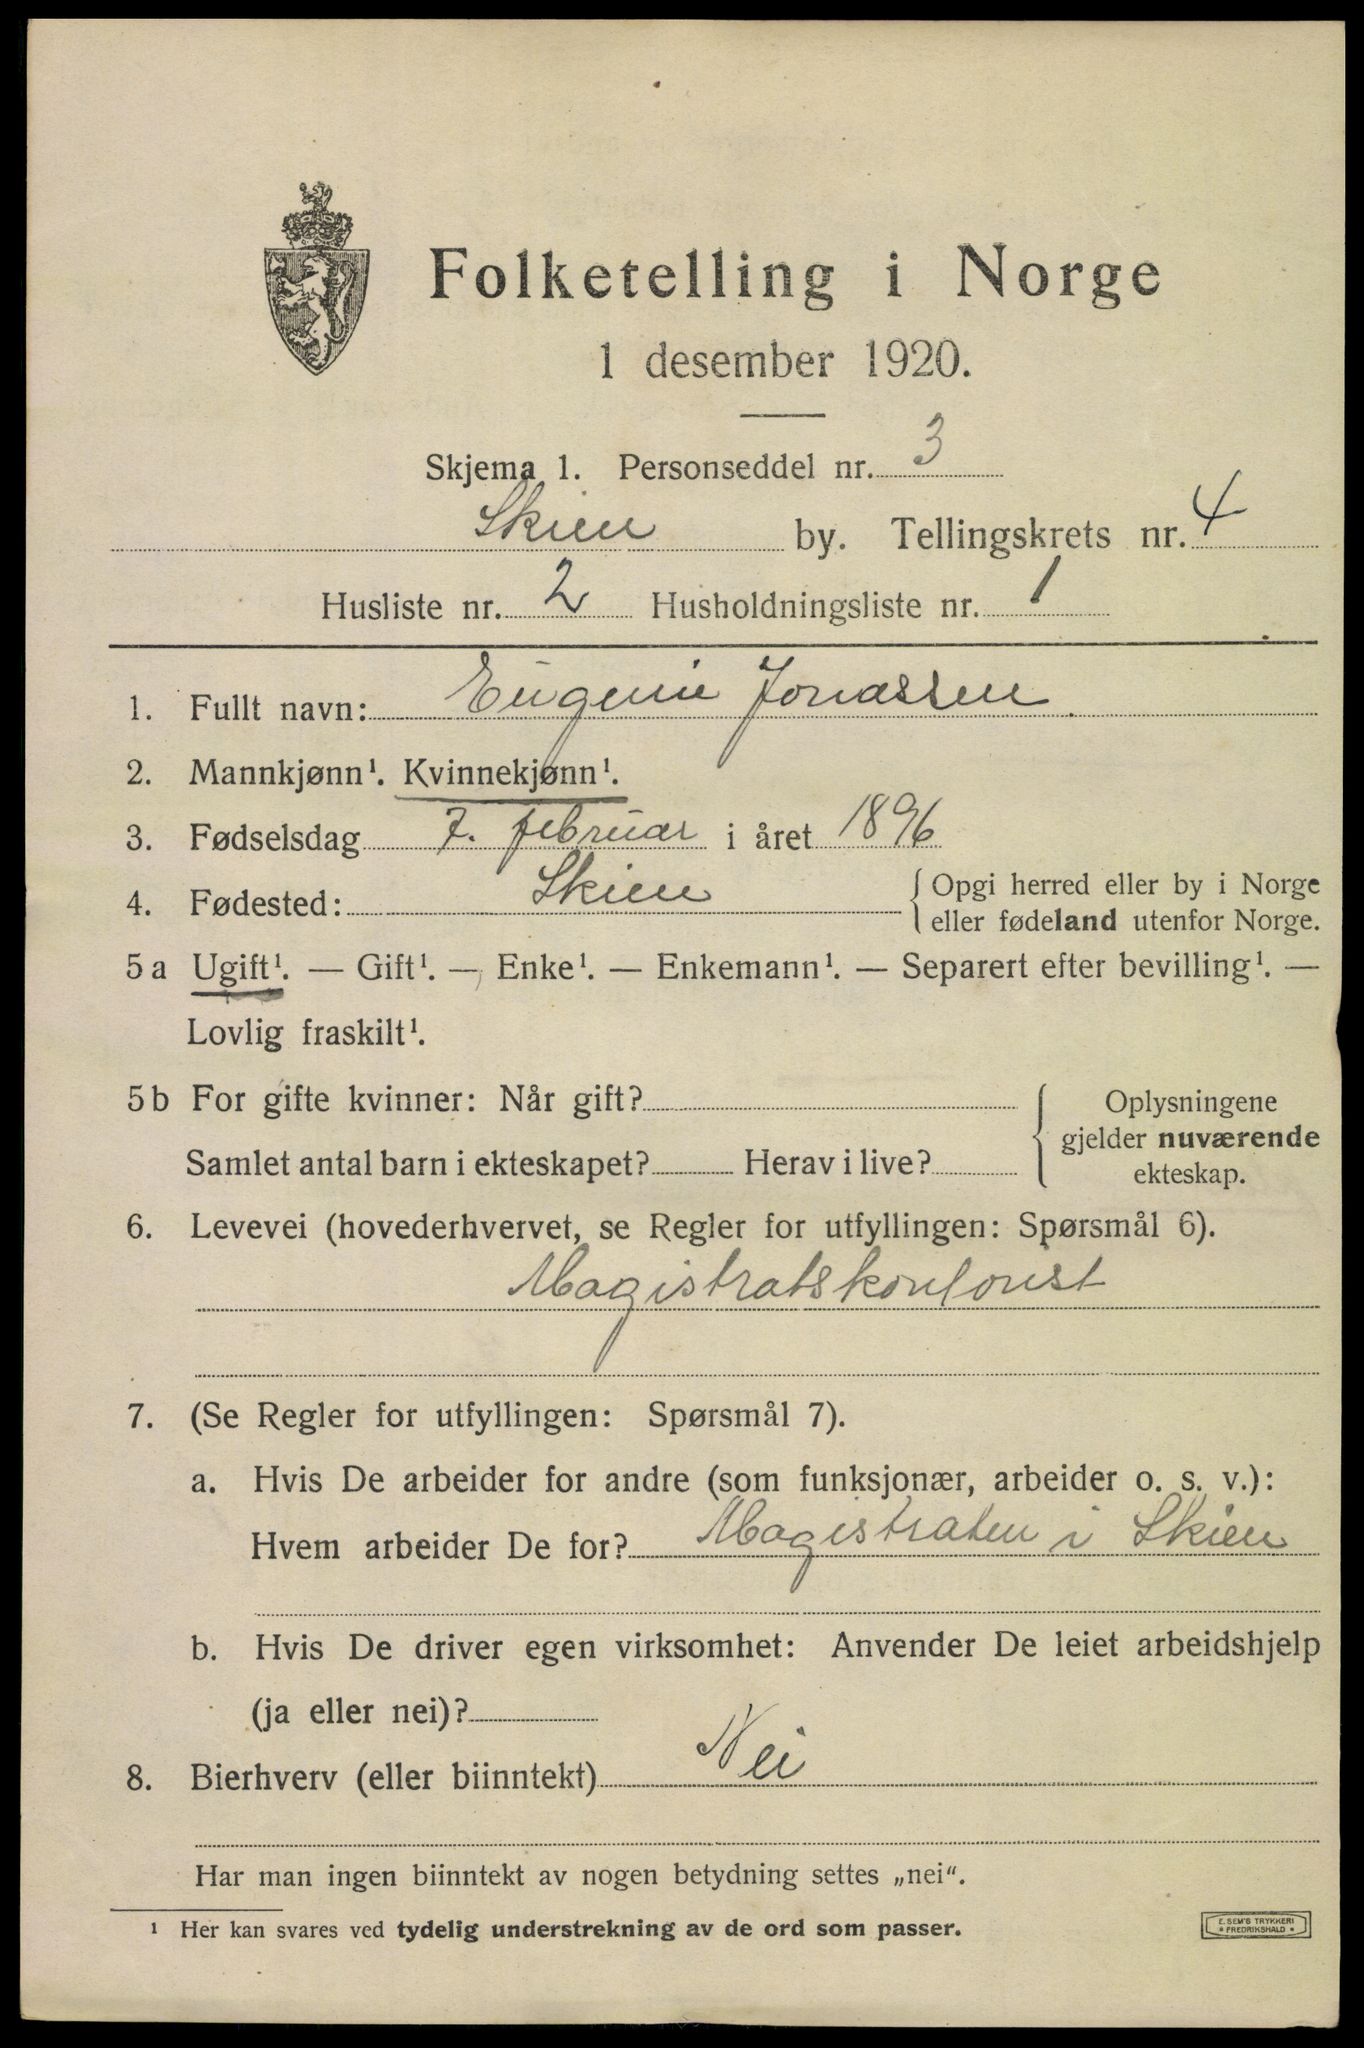 Folketelling i Norge
1 desember 1920.
Skjema 1. Personseddel nr. 3
Skien by. Tellingskrets nr. 4
Husliste nr. 2 Husholdningsliste nr. 1
1. Fullt navn: Eugenie Jonassen
2. Mannkjønn¹. Kvinnekjønn¹.
3. Fødselsdag 7. februar i året 1896
4. Fødested: Skien { Opgi herred eller by i Norge
eller fødeland utenfor Norge.
5 a Ugift¹. — Gift¹. — Enke¹. — Enkemann¹. — Separert efter bevilling¹. —
Lovlig fraskilt¹.
5 b For gifte kvinner: Når gift? { Oplysningene
gjelder nuværende
Samlet antal barn i ekteskapet? Herav i live? ekteskap.
6. Levevei (hovederhvervet, se Regler for utfyllingen: Spørsmål 6).
Magistratskontorist
7. (Se Regler for utfyllingen: Spørsmål 7).
a. Hvis De arbeider for andre (som funksjonær, arbeider o. s. v.):
Hvem arbeider De for? Magistraten i Skien
b. Hvis De driver egen virksomhet: Anvender De leiet arbeidshjelp
(ja eller nei)?
8. Bierhverv (eller biinntekt) Nei
Har man ingen biinntekt av nogen betydning settes „nei“.
¹ Her kan svares ved tydelig understrekning av de ord som passer.
E. SEM'S TRYKKERI
FREDRIKSHALD